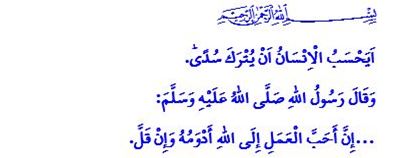 بِسْمِ اللهِ الرَّحْمٰنِ الرَّحِيمِ
اَيَحْسَبُ الْاِنْسَانُ اَنْ يُتْرَكَ سُدًىۜ.
وَقَالَ رَسُولُ اللهِ صَلَّى اللهُ عَلَيْهِ وَسَلَّمَ:
…إِنَّ أَحَبَّ الْعَمَلِ إِلَى اللهِ أَدْوَمُهُ وَإِنْ قَلَّ.